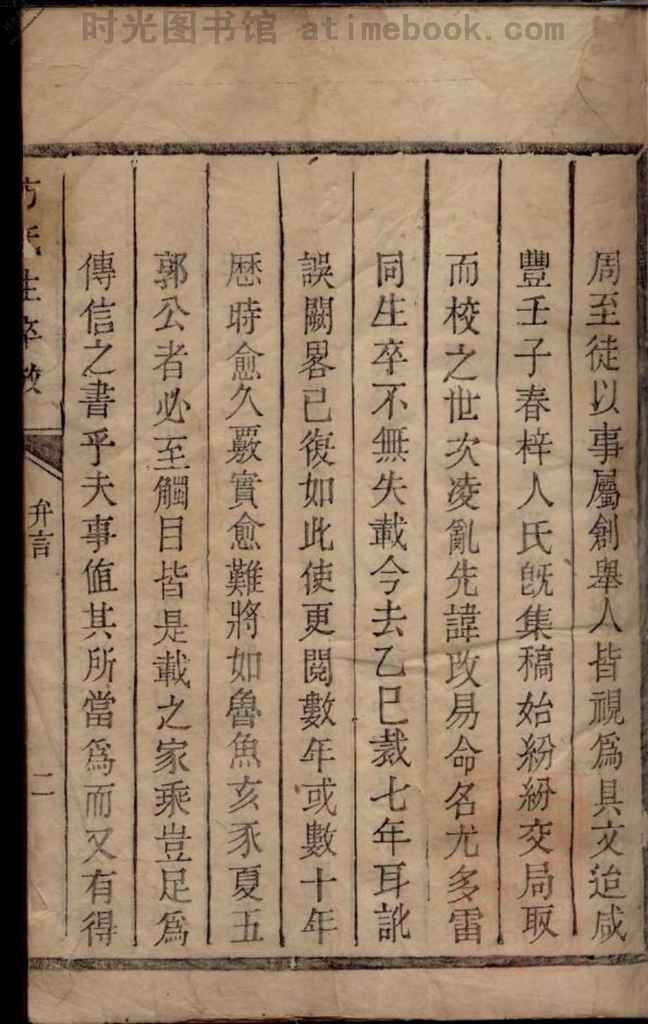 时光图书馆 atimebook.com
周至徒以事屬創舉人皆視爲具文迨咸
豐壬子春梓人氏旣集稿始紛紛交局取
而校之世次凌亂先諱改易命名尤多雷
同生卒不無失載今去乙巳裁七年耳訛
誤闕畧已復如此使更閱數年或數十年
歷時愈久覈實愈難將如魯魚亥豕夏五
郭公者必至觸目皆是載之家乘豈足爲
傳信之書乎夫事值其所當爲而又有得
方氏生卒
弁言
二